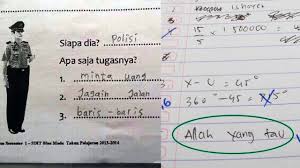 Siapa dia? Polisi
Apa saja tugasnya?
1. minta uang
2. Jagain Jalan
3. baris-baris
Semester 1 - SDIT Tahun Pelajaran 2013-2014
15/5 x 1.500.000 =
x - u = 45°
360° - 45 =
Allah yang tau